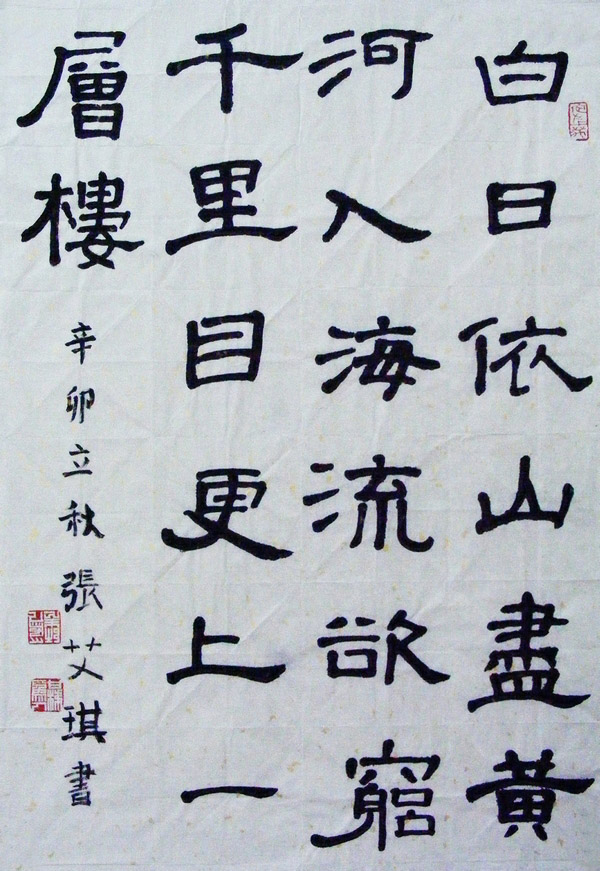 白日依山盡黃
河入海流欲窮
千里目更上一
層樓
辛卯立秋張艾琪書